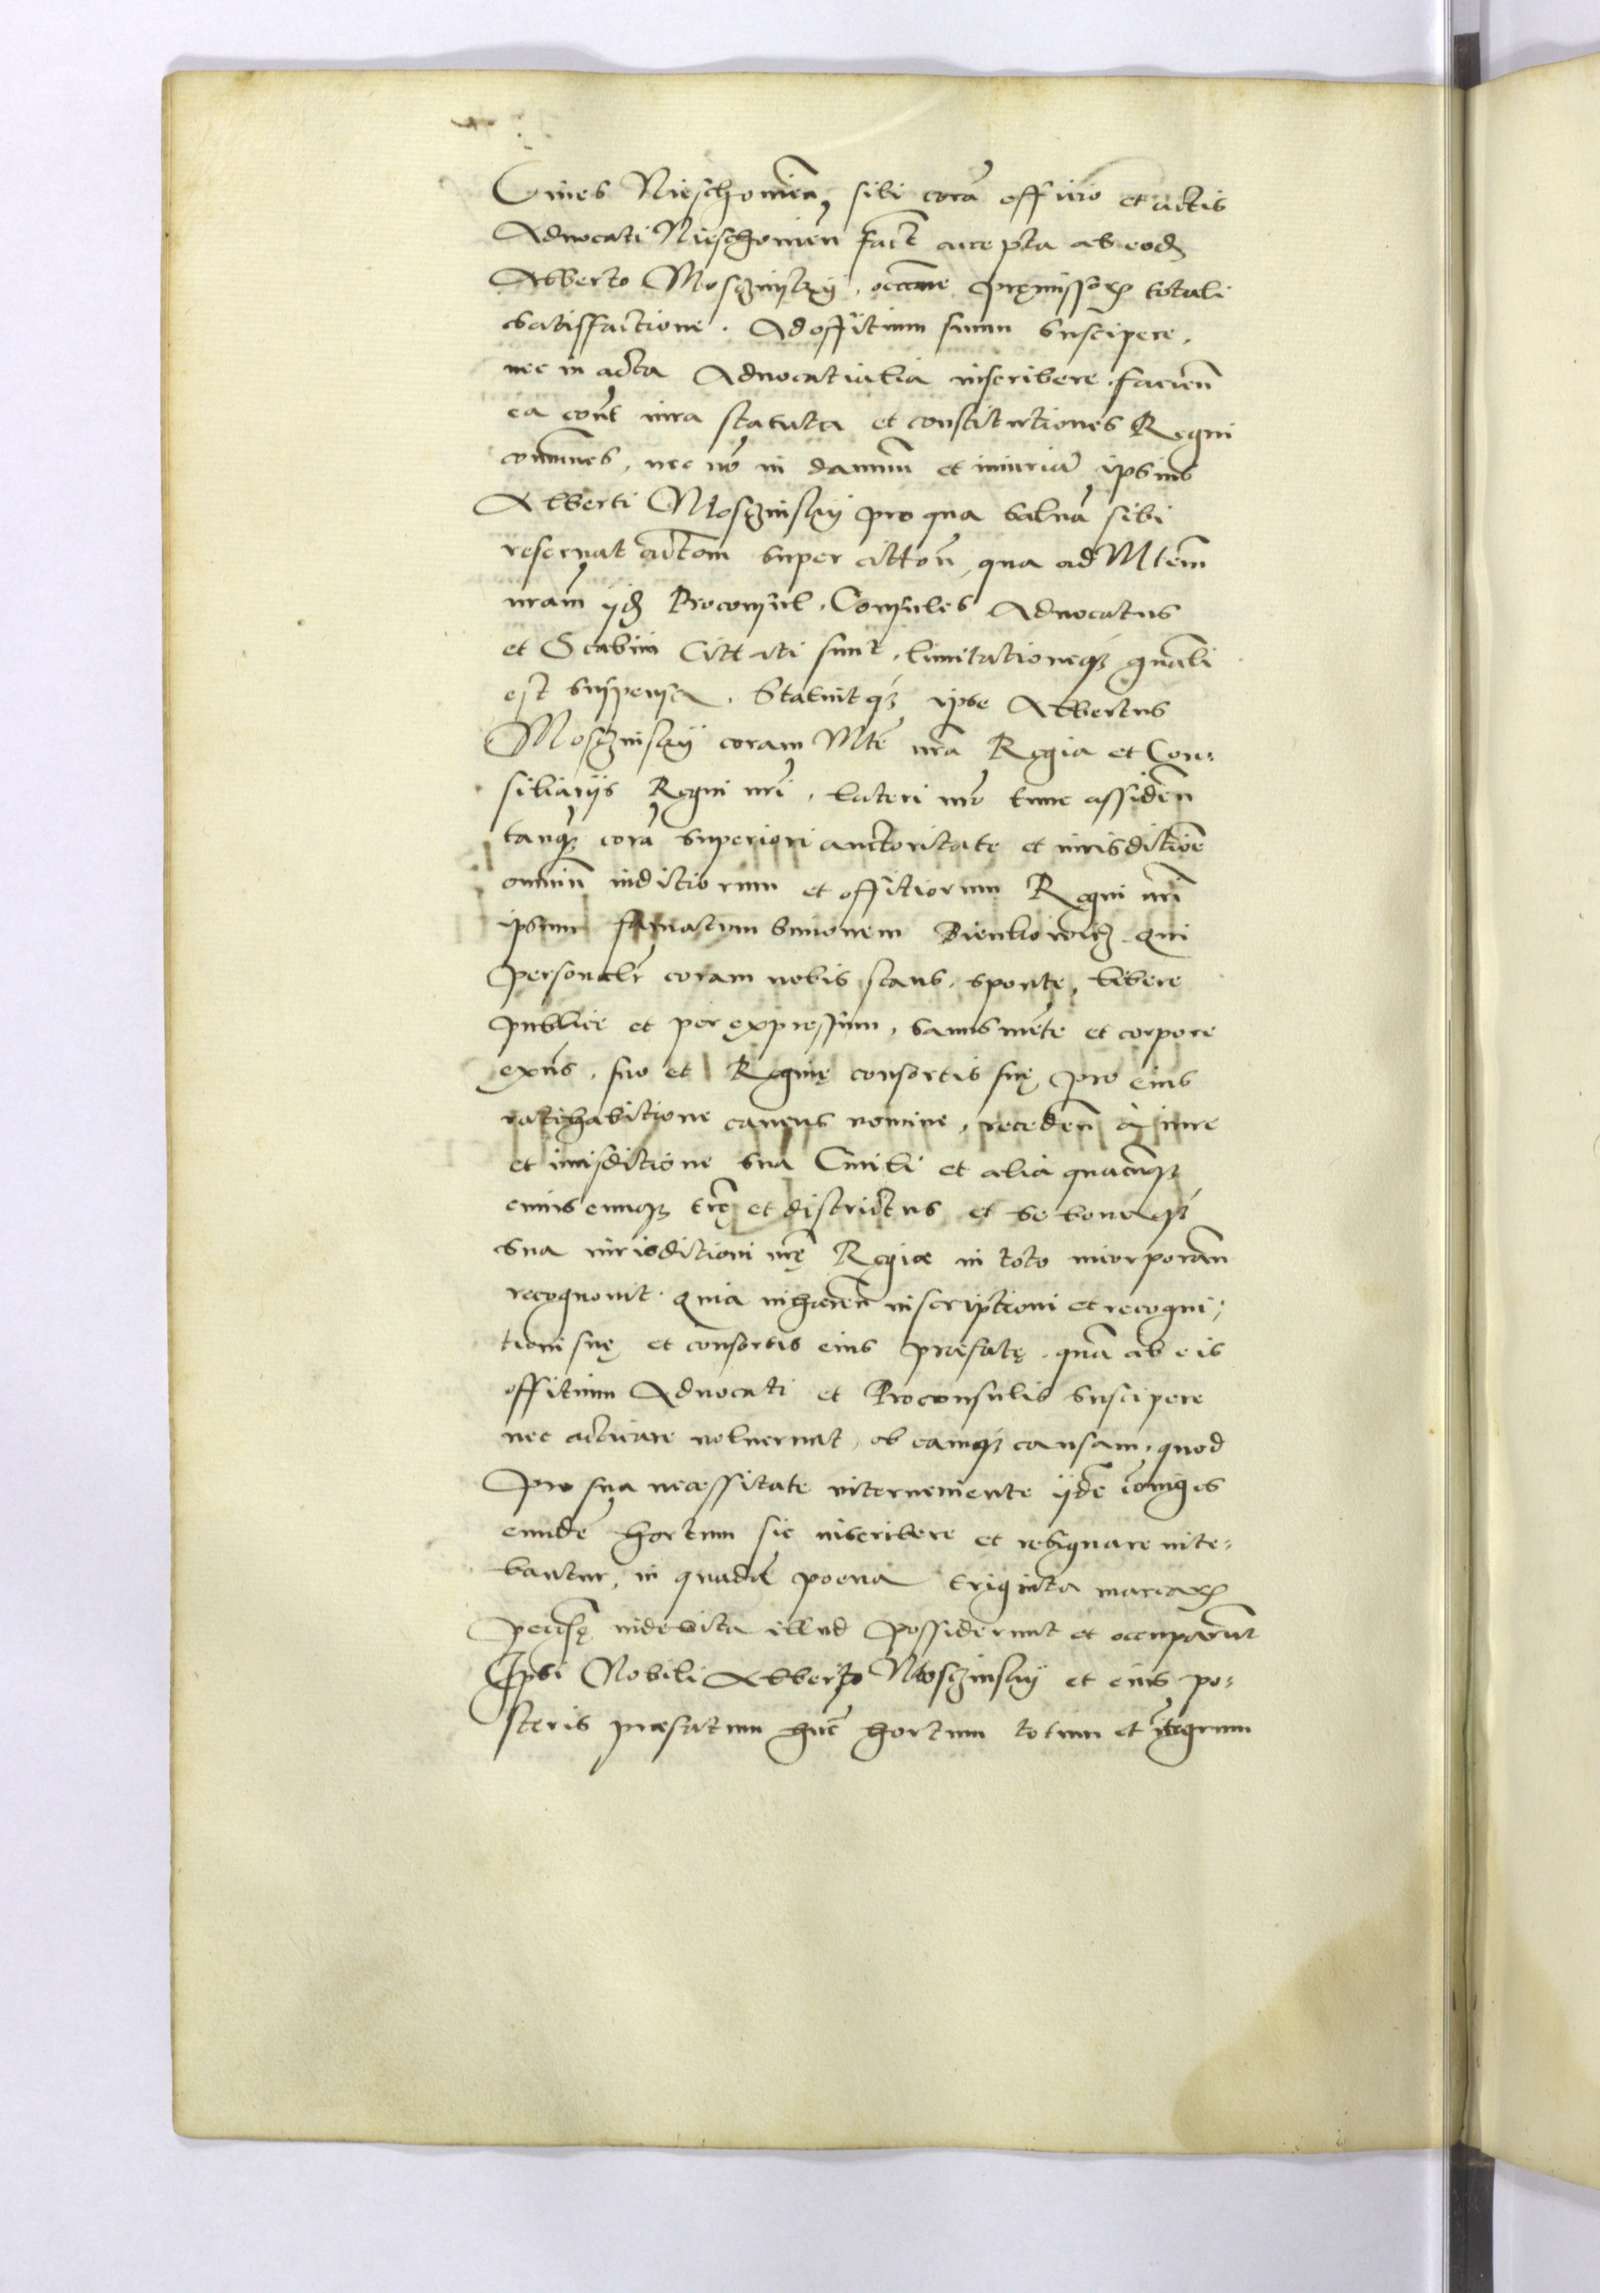 Ciues Nieschouien̄ sibi corā officio et actis
Aduocati Nieschouien̄ fact̄ accepta ab eod̄
Alberto Mosczinsky, occōne pręmissorꝝ totali
satisfactione. Ad offitium suum suscipere,
nec in acta Aduocatialia inscribere, facien̄
ea cont̄ iura statuta et constitutiones Regni
cōmunes, nec nō in damnū et iniuriā ipsius
Alberti Mosczinsky pro qua saluā sibi
reseruat actōm super cittōn̄, qua ad Mtem
nrām ijd̄ Proconsul, Consules Aduocatus
et Scabini Cittati sunt, limitationeqꝫ gn̄ali
est suspensa. Statuitqꝫ ipse Albertus
Mosczinsky coram Mte nrā Regia et Con-
siliarijs Regni nrī, lateri nrō tunc assiden̄
tanqꝫ corā superiori auctoritate et iurisdictiōe
omniū iudiciorum et offitiorum Regni nrī
ipsum famatum Simonem Bienkowicz. Qui
personalr̄ coram nobis stans, sponte, libere
publice et per expressum, sanus mēte et corpore
exn̄s, suo et Reginę consortis suę pro eius
ratihabitione cauens nomine, receden̄ à iure
et iurisditione sua Ciuili et alia quacūqꝫ
cuiuscunqꝫ trę et districtus et se bonaqꝫ
sua iurisditioni nrę Regiæ in toto incorporan̄
recognouit. Quia inhæren̄ inscriptioni et recogni-
tioni suę et consortis eius præfatę, quā ab eis
offitium Aduocati et Proconsulis suscipere
nec acticare noluerunt, ob eamqꝫ causam, quod
pro sua necessitate interueniente ijdē cōiuges
eundē hortum sic inscribere et resignare nite-
bantur, in quadā poena triginta marcarꝝ
pecunię indebita illud possiderunt et occuparūt
Ipsi Nobili Alberto Mosczinsky et eius po-
steris præfatum hūc hortum totum et ītegrum